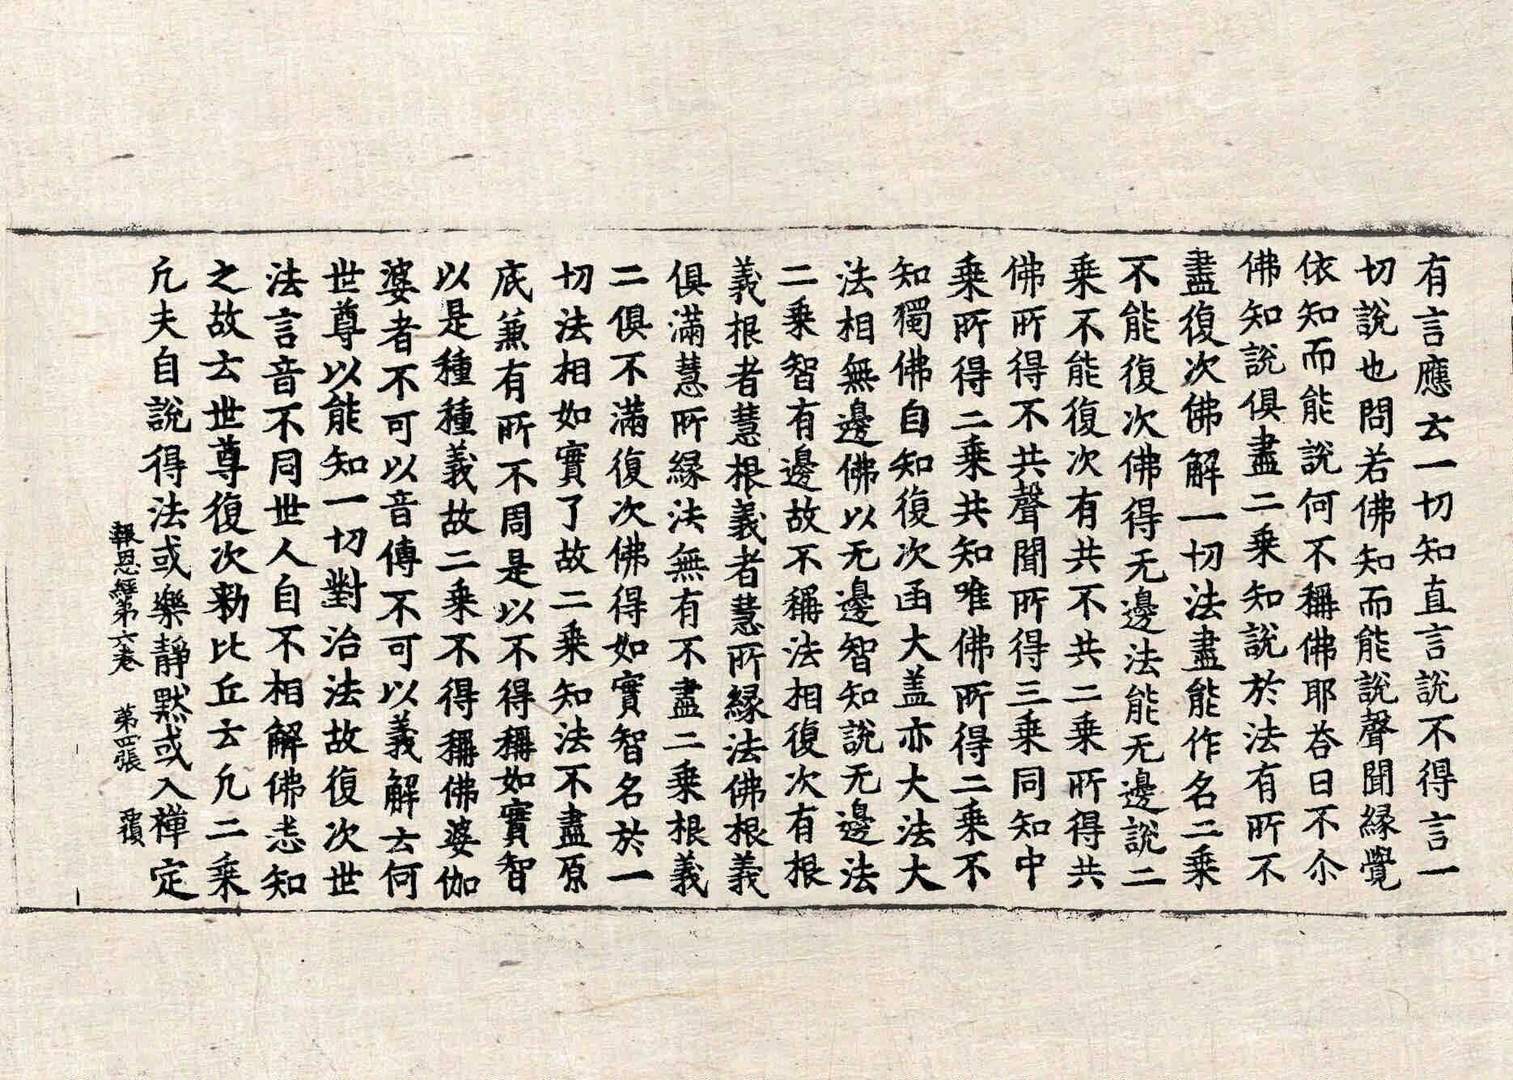 有言應云一切知直言說不得言一
切說也問若佛知而能說聲聞緣覺
依知而能說何不稱佛耶荅曰不尒
佛知說俱盡二乘知說於法有所不
盡復次佛解一切法盡能作名二乘
不能復次佛得无邊法能无邊說二
乘不能復次有共不共二乘所得共
佛所得不共聲聞所得三乘同知中
乘所得二乘共知唯佛所得二乘不
知獨佛自知復次函大盖亦大法大
法相無邊佛以无邊智知說无邊法
二乘智有邊故不稱法相復次有根
義根者慧根義者慧所緣法佛根義
俱滿慧所緣法無有不盡二乘根義
二俱不滿復次佛得如實智名於一
切法相如實了故二乘知法不盡原
底兼有所不周是以不得稱如實智
以是種種義故二乘不得稱佛婆伽
婆者不可以音傳不可以義解云何
世尊以能知一切對治法故復次世
法言音不同世人自不相解佛悉知
之故云世尊復次勑比丘云凢二乘
凢夫自說得法或樂靜默或入禪定
報恩經第六卷　第四張